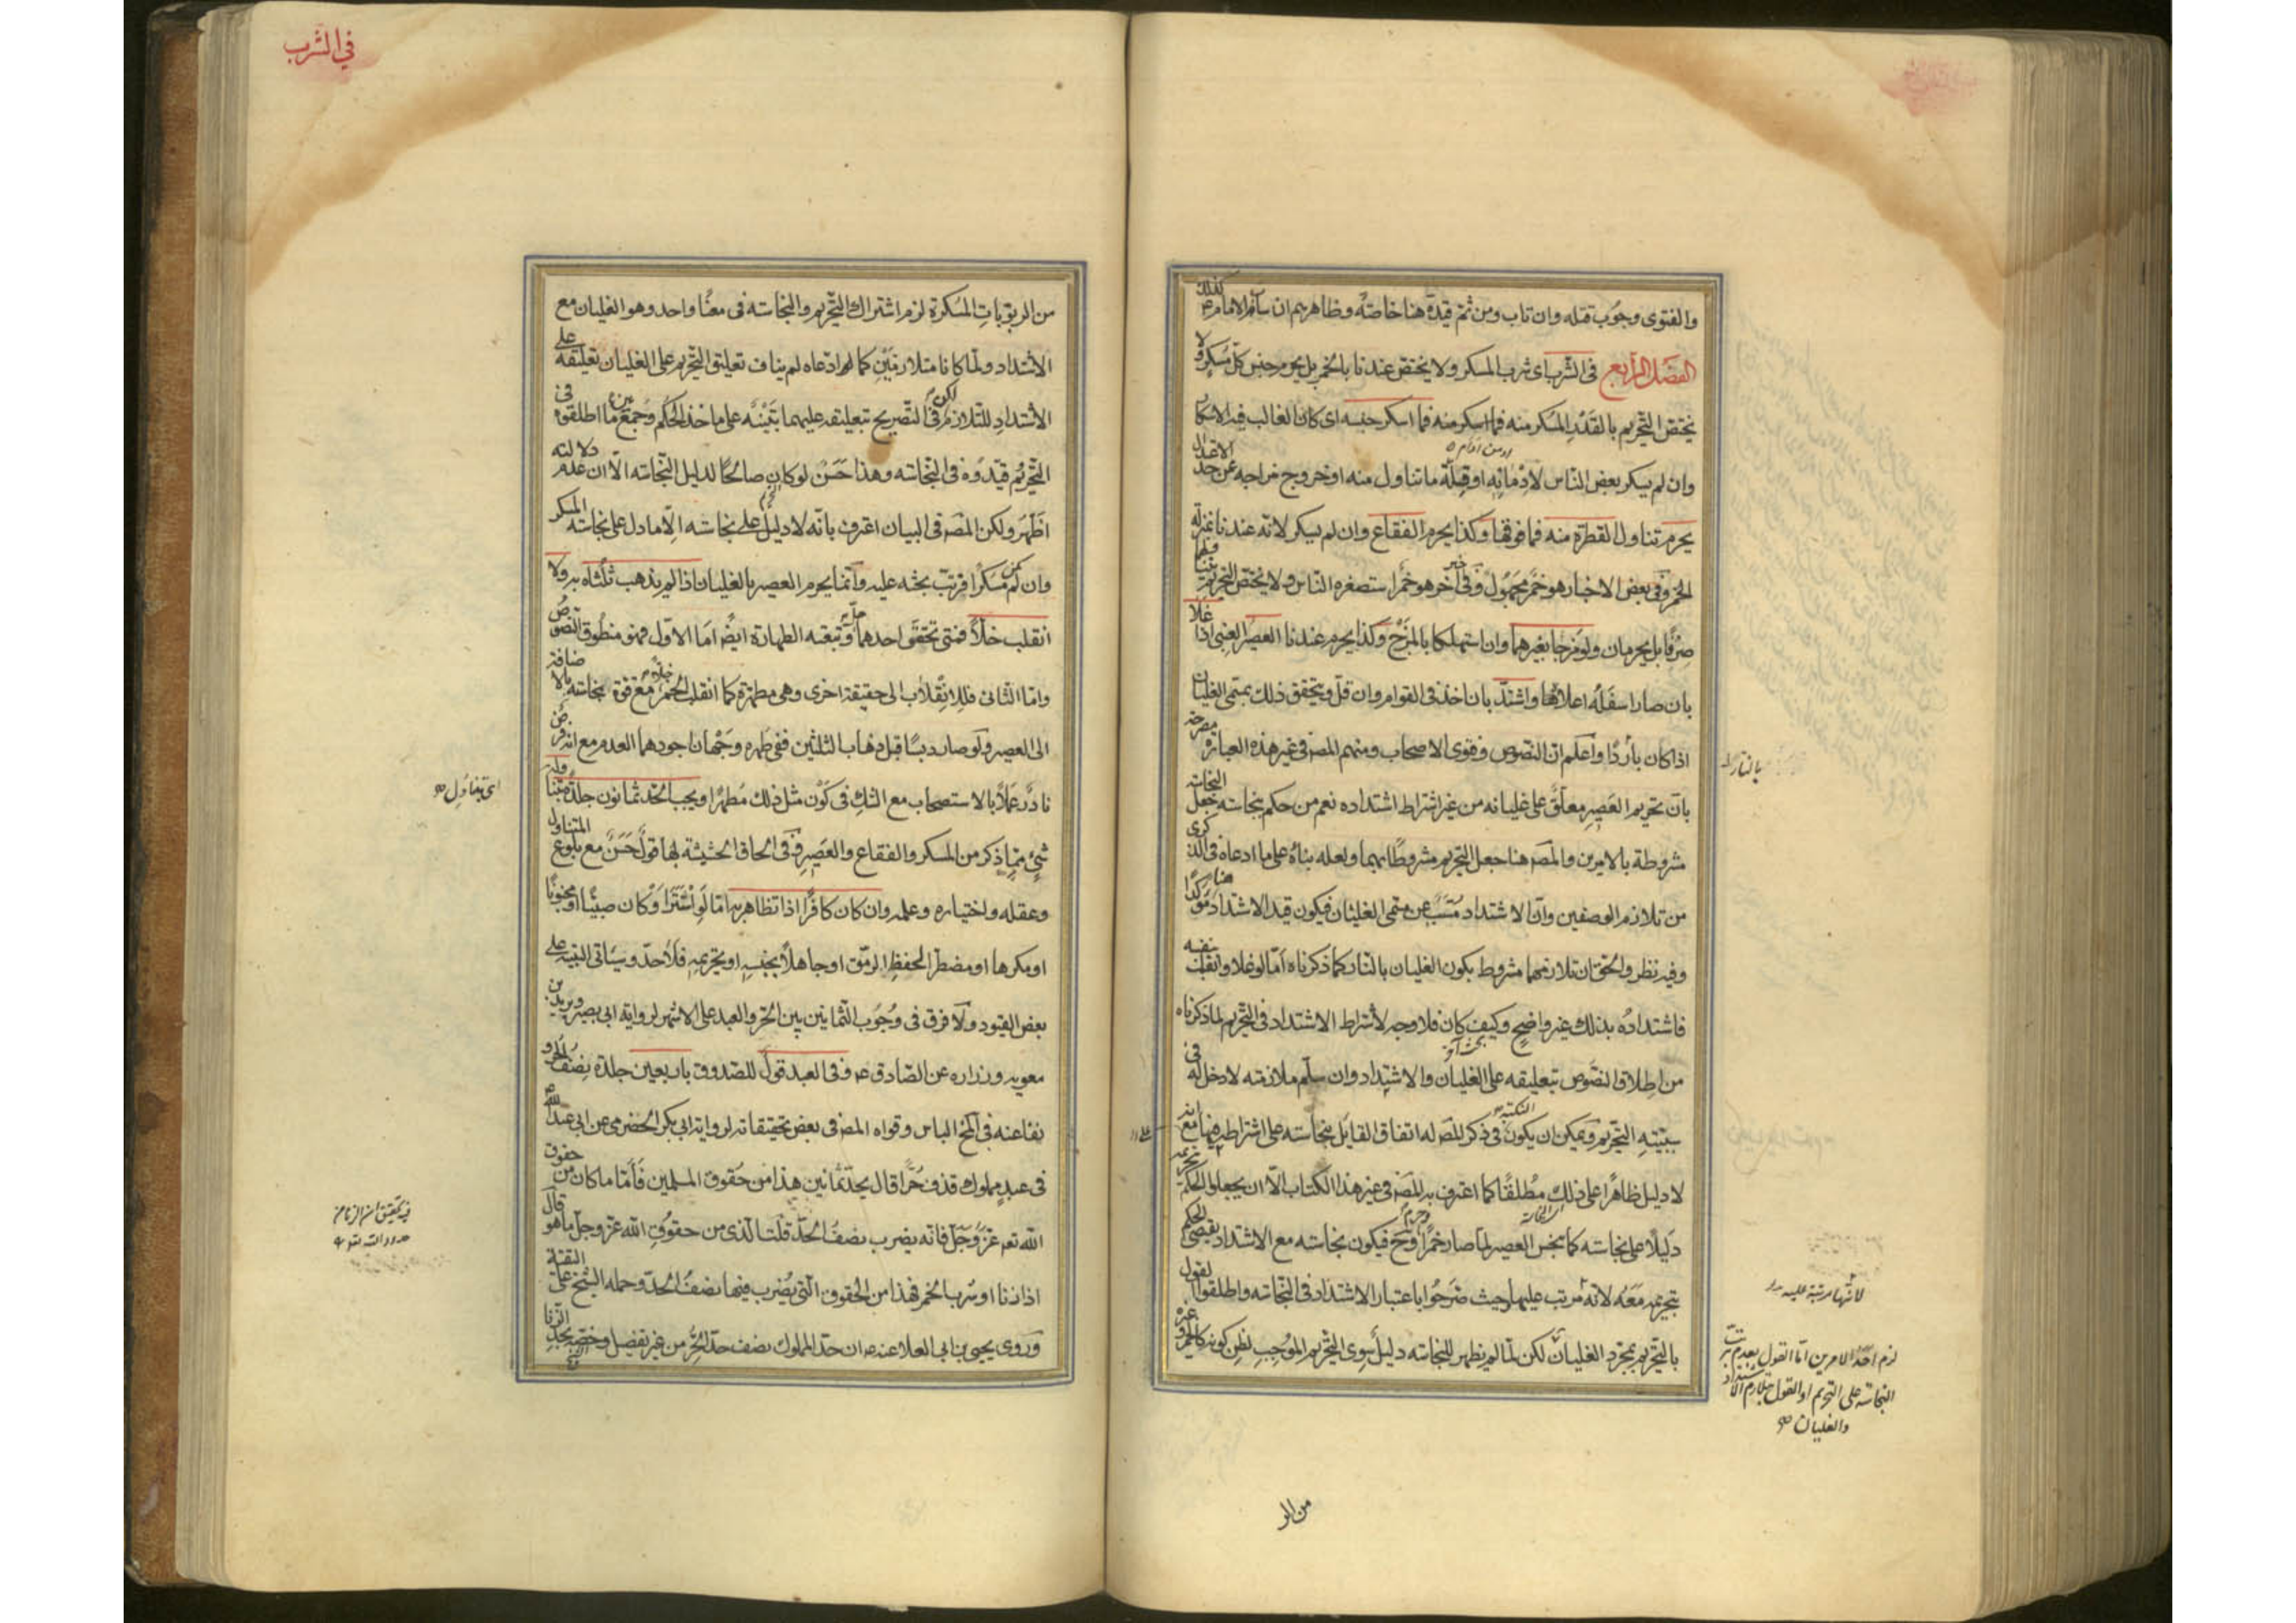 والفتوى وجوب قتله وان تاب ومن ثم قيده هنا خاصة وظاهرهم ان سابّ الامام ع كذلك
الفصل الرابع في الشرب اى شرب المسكر ولا يختص عندنا بالخمر بل يحرم جنس كل مسكر ولا
يختص التحريم بالقدر المسكر منه فما اسكر جنسه اى كان الغالب فيه الاسكار
وان لم يسكر بعض الناس لادمانه او قلة ما تناول منه او خروج مزاجه عن حد الاعتدال
يحرم تناول القطرة منه فما فوقها وكذا يحرم الفقاع وان لم يسكر لانه عندنا بمنزلة
الخمر وفى بعض الاخبار هو خمر مجهول وفى آخر هو خمر استصغره الناس ولا يختص التحريم بتناولهما
صرفا بل يحرمان ولو مزجا بغيرهما وان استهلكا بالمزج وكذا يحرم عندنا العصير العنبى اذا غلا
بان صار اسفله اعلاه واشتد بان اخذ فى القوام وان قل ويتحقق ذلك بمسمى الغليان
اذا كان باردا واعلم ان النصوص وفتوى الاصحاب ومنهم المص فى غير هذه العبارة مصرحة
بان تحريم العصير معلق على غليانه من غير اشتراط اشتداده نعم من حكم بنجاسته جعل النجاسة
مشروطة بالامرين والمص هنا جعل التحريم مشروطا بهما ولعله بناء على ما ادعاه فى الذكرى
من تلازم الوصفين وان الاشتداد مسبب عن مسمى الغليان فيكون قيد الاشتداد هنا مؤكدا
وفيه نظر والحق ان تلازمهما مشروط بكون الغليان بالنار كما ذكرناه اما لو غلا وانقلب بنفسه
فاشتداده بذلك غير واضح وكيف كان فلا وجه لاشتراط الاشتداد فى التحريم لما ذكرناه
من اطلاق النصوص بتعليقه على الغليان والاشتداد وان سلم ملازمته لا دخل له فى
سببية التحريم ويمكن ان يكون النكتة فى ذكر المص له اتفاق القائل بنجاسته على اشتراطه فيها مع انه
لا دليل ظاهرا على ذلك مطلقا كما اعترف به المص فى غير هذا الكتاب الا ان يجعلوا الحكم بتحريمه
دليلا على نجاسته كما ينجس العصير لما صار خمرا وحرم وح فيكون نجاسته مع الاشتداد يقتضى الحكم
بتحريمه معه لانه مرتب عليها وحيث صرحوا باعتبار الاشتداد فى النجاسة واطلقوا القول
بالتحريم بمجرد الغليان لكن لما لم يظهر للنجاسة دليل سوى التحريم الموجب لظن كونه كالخمر وغيره
بالنار
لانها مرتبة عليه
لزم احد الامرين اما القول بعدم ترتب
النجاسة على التحريم او القول بتلازم الاشتداد
والغليان
من الر
في الشرب
من الربوبات المسكرة لزم اشتراك التحريم والنجاسة فى معنا واحد وهو الغليان مع
الاشتداد ولما كانا متلازمين كما ادعاه لم يناف تعليق التحريم على الغليان تعليقه على
الاشتداد للتلازم لكن فى التصريح بتعليقه عليهما تنبيه على ماخذ الحكم وجمع بين ما اطلقوه فى
التحريم وقيدوه فى النجاسة وهذا حسن لو كان صالحا لدليل النجاسة الا ان عدم دلالته
اظهر ولكن المص فى البيان اعترف بانه لا دليل على نجاسته الا ما دل على نجاسة المسكر
وان لم يكن مسكرا فرتب بحثه عليه وانما يحرم العصير بالغليان اذا لم يذهب ثلثاه به ولا
انقلب خلا فمتى تحقق احدهما حل وتبعته الطهارة ايضا اما الاول فهو منطوق النصوص
واما الثانى فللانقلاب الى حقيقة اخرى وهى مطهرة كما لو انقلب الخمر خلا مع قوة نجاسته بالاضافة
الى العصير ولو صار دبسا قبل ذهاب الثلثين ففى طهره وجهان اجودهما العدم مع انه فرض
نادر عملا بالاستصحاب مع الشك فى كون مثل ذلك مطهرا ويجب الحد ثمانون جلدة بتناول
شىء مما ذكر من المسكر والفقاع والعصير وفى الحاق الحشيشة بها قول حسن مع بلوغ المتناول
وعقله واختياره وعلمه وان كان كافرا اذا تظاهر به اما لو استتر او كان صبيا او مجنونا
او مكرها او مضطرا لحفظ الرمق او جاهلا بجنسه او تحريمه فلا حد وسياتى التنبيه على
بعض القيود ولا فرق فى وجوب الثمانين بين الحر والعبد على الاشهر لرواية ابى بصير وبريد بن
معوية وزرارة عن الصادق ع وفى العبد قول للصدوق باربعين جلدة نصف الحر و
نفا عنه فى المخ الباس وقواه المص فى بعض تحقيقاته لرواية ابى بكر الحضرمى عن ابى عبد الله ع
فى عبد مملوك قذف حرا قال يحد ثمانين هذا من حقوق المسلمين فاما ما كان من حقوق
الله تع عز وجل فانه يضرب نصف الحد قلت الذى من حقوق الله عز وجل ما هو قال
اذا زنا او شرب الخمر فهذا من الحقوق التى يضرب فيها نصف الحد وحمله الشيخ على التقية
وروى يحيى بن ابى العلا عنه ع ان حد المملوك نصف حد الحر من غير تفصيل وخصه بحد الزنا
اى بتناول